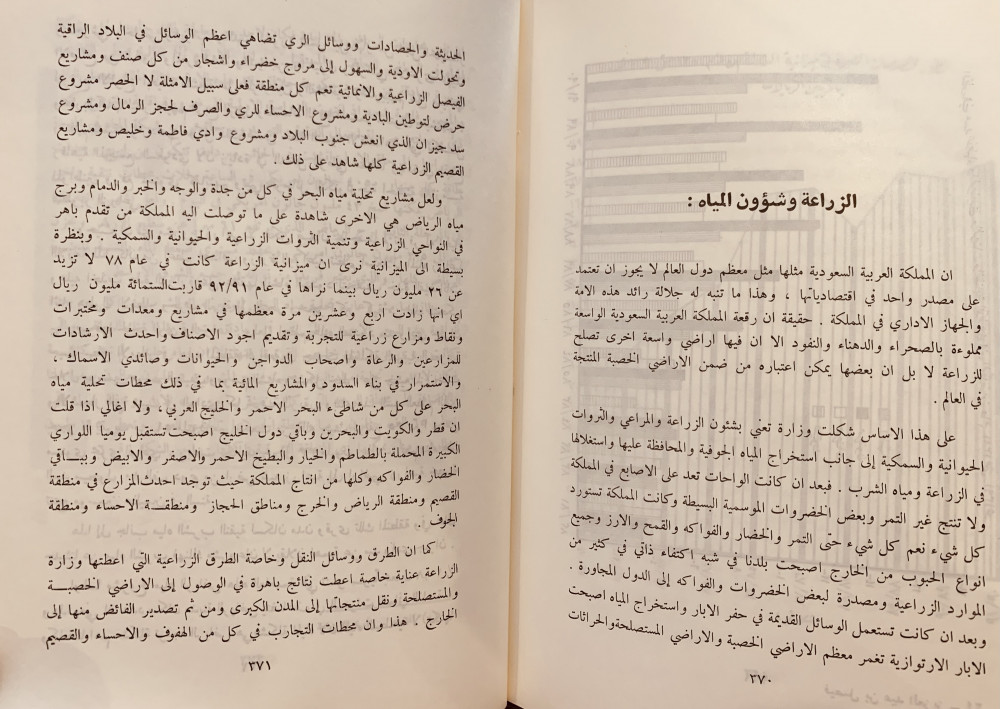 الزراعة وشؤون المياه :
ان المملكة العربية السعودية مثلها مثل معظم دول العالم لا يجوز ان تعتمد
على مصدر واحد في اقتصادياتها ، وهذا ما تنبه له جلالة رائد هذه الامة
والجهاز الاداري في المملكة . حقيقة ان رقعة المملكة العربية السعودية الواسعة
مملوءة بالصحراء والدهناء والنفود الا ان فيها اراضي واسعة اخرى تصلح
للزراعة لا بل ان بعضها يمكن اعتباره من ضمن الاراضي الخصبة المنتجة
في العالم .
على هذا الاساس شكلت وزارة تعني بشئون الزراعة والمراعي والثروات
الحيوانية والسمكية إلى جانب استخراج المياه الجوفية والمحافظة عليها واستغلالها
في الزراعة ومياه الشرب . فبعد ان كانت الواحات تعد على الاصابع في المملكة
ولا تنتج غير التمر وبعض الخضروات الموسمية البسيطة وكانت المملكة تستورد
كل شيء نعم كل شيء حتى التمر والخضار والفواكه والقمح والارز وجميع
انواع الحبوب من الخارج اصبحت بلدنا في شبه اكتفاء ذاتي في كثير من
الموارد الزراعية ومصدرة لبعض الخضروات والفواكه إلى الدول المجاورة .
وبعد ان كانت تستعمل الوسائل القديمة في حفر الابار واستخراج المياه اصبحت
الابار الارتوازية تغمر معظم الاراضي الخصبة والاراضي المستصلحةوالحراثات
٣٧٠
الحديثة والحصادات ووسائل الري تضاهي اعظم الوسائل في البلاد الراقية
وتحولت الاودية والسهول إلى مروج خضراء واشجار من كل صنف ومشاريع
الفيصل الزراعية والانمائية تعم كل منطقة فعلى سبيل الامثلة لا الحصر مشروع
حرض لتوطين البادية ومشروع الاحساء للري والصرف لحجز الرمال ومشروع
سد جيزان الذي انعش جنوب البلاد ومشروع وادي فاطمة وخليص ومشاريع
القصيم الزراعية كلها شاهد على ذلك .
ولعل مشاريع تحلية مياه البحر في كل من جدة والوجه والخبر والدمام وبرج
مياه الرياض هي الاخرى شاهدة على ما توصلت اليه المملكة من تقدم باهر
في النواحي الزراعية وتنمية الثروات الزراعية والحيوانية والسمكية . وبنظرة
بسيطة الى الميزانية نرى ان ميزانية الزراعة كانت في عام ٧٨ لا تزيد
عن ٢٦ مليون ريال بينما نراها في عام ٩٢/٩١ قاربت الستمائة مليون ريال
اي انها زادت اربع وعشرين مرة معظمها في مشاريع ومعدات ومختبرات
ونقاط ومزارع زراعية للتجربة وتقديم اجود الاصناف واحدث الارشادات
للمزارعين والرعاة واصحاب الدواجن والحيوانات وصائدي الاسماك ،
والاستمرار في بناء السدود والمشاريع المائية بما في ذلك محطات تحلية مياه
البحر على كل من شاطىء البحر الاحمر والخليج العربي، ولا اغالي اذا قلت
ان قطر والكويت والبحرين وباقي دول الخليج اصبحت تستقبل يوميا اللواري
الكبيرة المحملة بالطماطم والخيار والبطيخ الاحمر والاصفر والابيض وبباقي
الخضار والفواكه وكلها من انتاج المملكة حيث توجد احدث المزارع في منطقة
القصيم ومنطقة الرياض والخرج ومناطق الحجاز ومنطقة الاحساء ومنطقة
الجوف .
كما ان الطرق ووسائل النقل وخاصة الطرق الزراعية التي اعطتها وزارة
الزراعة عناية خاصة اعطت نتائج باهرة في الوصول إلى الاراضي الخصبة
والمستصلحة ونقل منتجاتها إلى المدن الكبرى ومن ثم تصدير الفائض منها إلى
الخارج . هذا وان محطات التجارب في كل من الهفوف والاحساء والقصيم
٣٧١